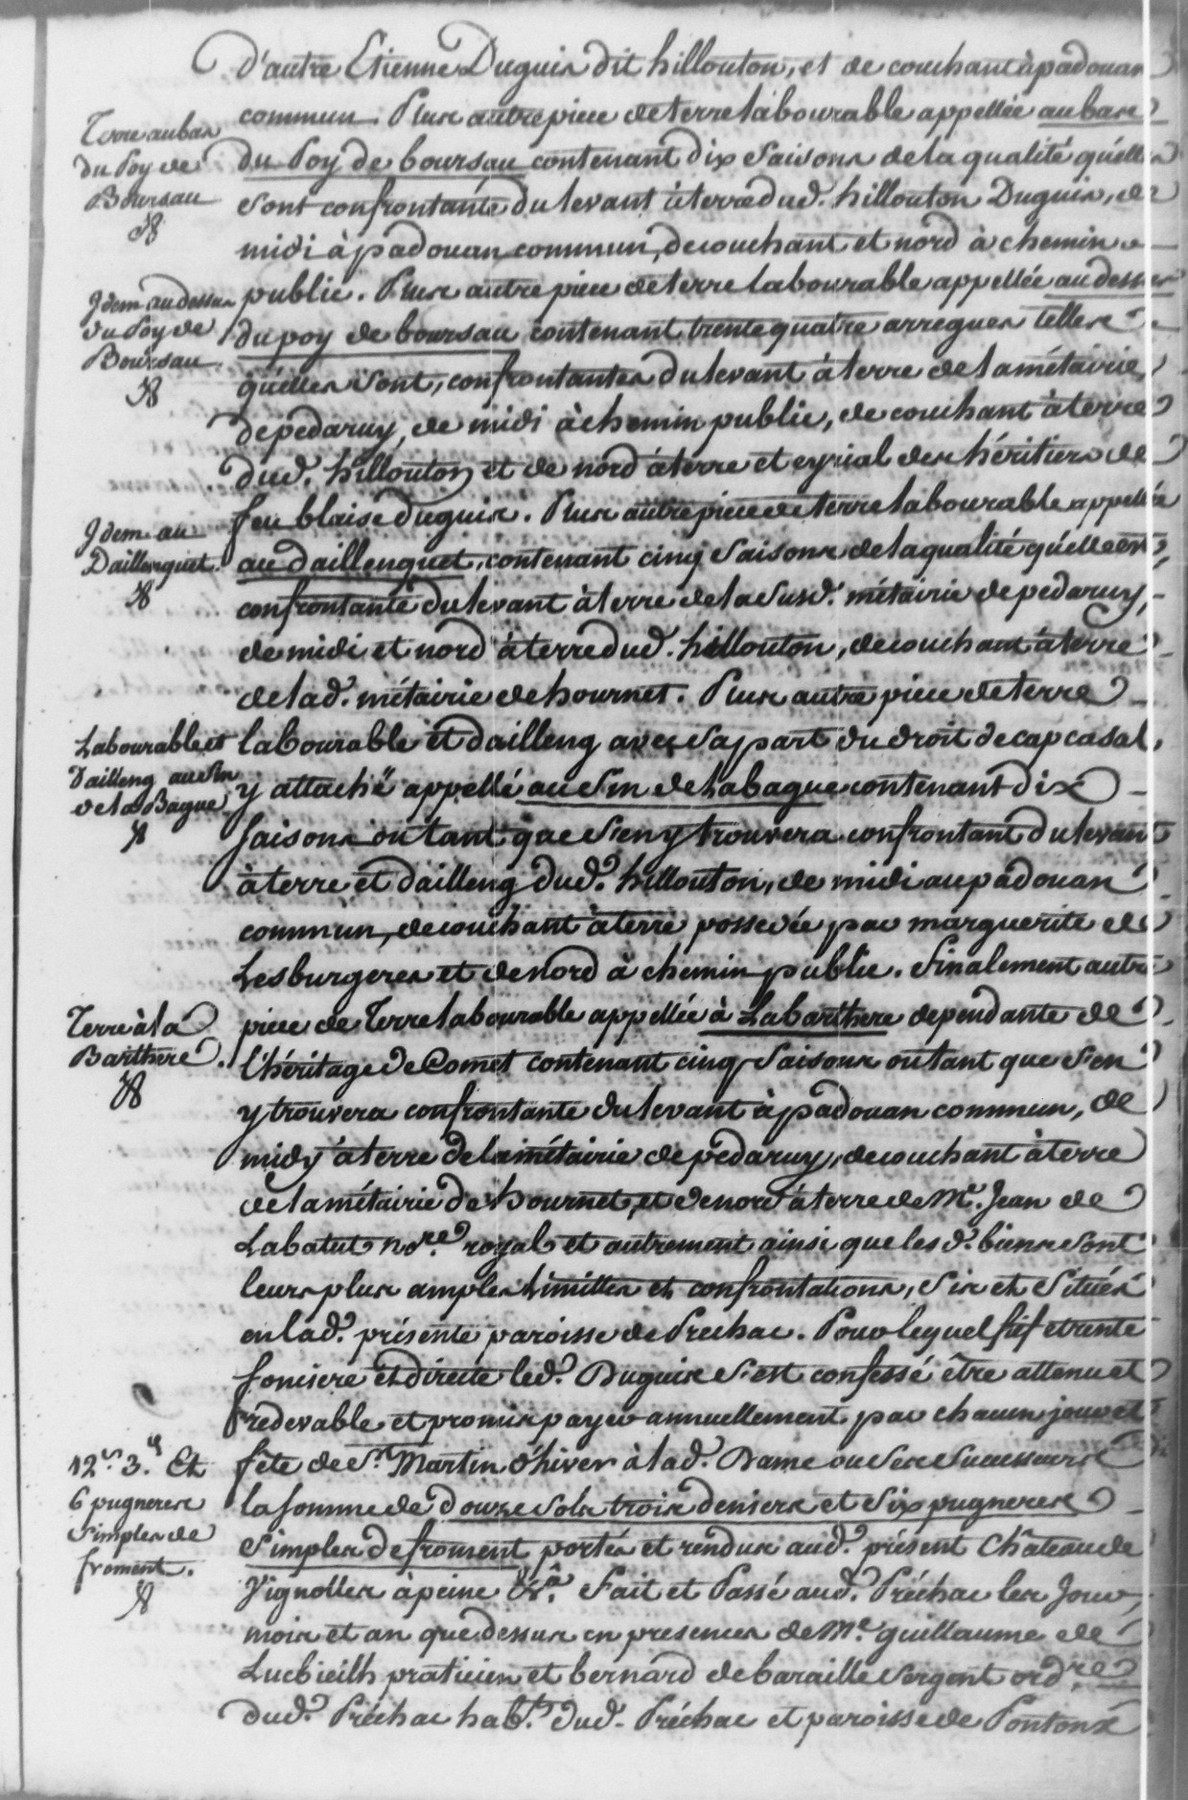 d'autre Etienne Duguis dit hillouton, et de couchant à padouan
commun. Plus autre piece de terre labourable appellée au bas
Terre au bas
du Poy de
Boursau
du Poy de boursau contenant dix saisons de la qualité qu'elles
sont confrontante du levant à terre dud. hillouton Duguis, de
midi à padouan commun, de couchant et nord à chemin
public. Plus autre piece de terre labourable appellée au dessus
Idem au dessus
du Poy de
Boursau
du poy de boursau contenant trente quatre arregues telles
qu'elles sont, confrontantes du levant à terre de la métairie
de pedaruy, de midi à chemin public, de couchant à terre
dud. hillouton et de nord à terre et eyrial des héritiers de
feu blaise duguis. Plus autre piece de terre labourable appellée
Idem au
Daillenguet.
au daillenguet, contenant cinq saisons de la qualité qu'elle est,
confrontante du levant à terre de la susd. métairie de pedaruy,
de midi et nord à terre dud. hillouton, de couchant à terre
de lad. métairie de hournet. Plus autre piece de terre
Labourable et
Dailleng au Sin
de la Bague
labourable et dailleng avec sa part du droit de cap casal,
y attaché appellé au Sin de Labague contenant dix
saisons ou tant que s'en y trouvera confrontant du levant
à terre et dailleng dud. hillouton, de midi au padouan
commun, de couchant à terre possedée par marguerite de
Lesburgeres et de nord à chemin public. Finalement autre
Terre à la
Barthere.
piece de Terre labourable appellée à Labarthere dependante de
l'héritage de Comet contenant cinq saisons ou tant que s'en
y trouvera confrontante du levant à padouan commun, de
midy à terre de la métairie de pedaruy, de couchant à terre
de la métairie de hournet, et de nord à terre de Me. Jean de
Labatut nore. royal et autrement ainsi que les d. biens sont
leurs plus amples limittes et confrontations, sis et situés
en lad. présente paroisse de Prechac. Pour lequel fief et rente
fonciere et directe led. Duguis s'est confessé être attenu et
redevable et promis payer annuellement par chacun jour et
12s. 3d. Et
6 pugneres
simples de
froment.
fête de St. Martin d'hiver à lad. Dame ou ses successeurs
la somme de douze sols trois deniers et six pugneres
simples de froment portés et rendus aud. présent Château de
Vignolles à peine &ra. Fait et Passé aud. Préchac les jour,
mois et an que dessus en presences de Me. guillaume de
Lucbieilh praticien et bernard de baraille sergent ordre.
dud. Préchac habts. dud. Préchac et paroisse de Pontonx